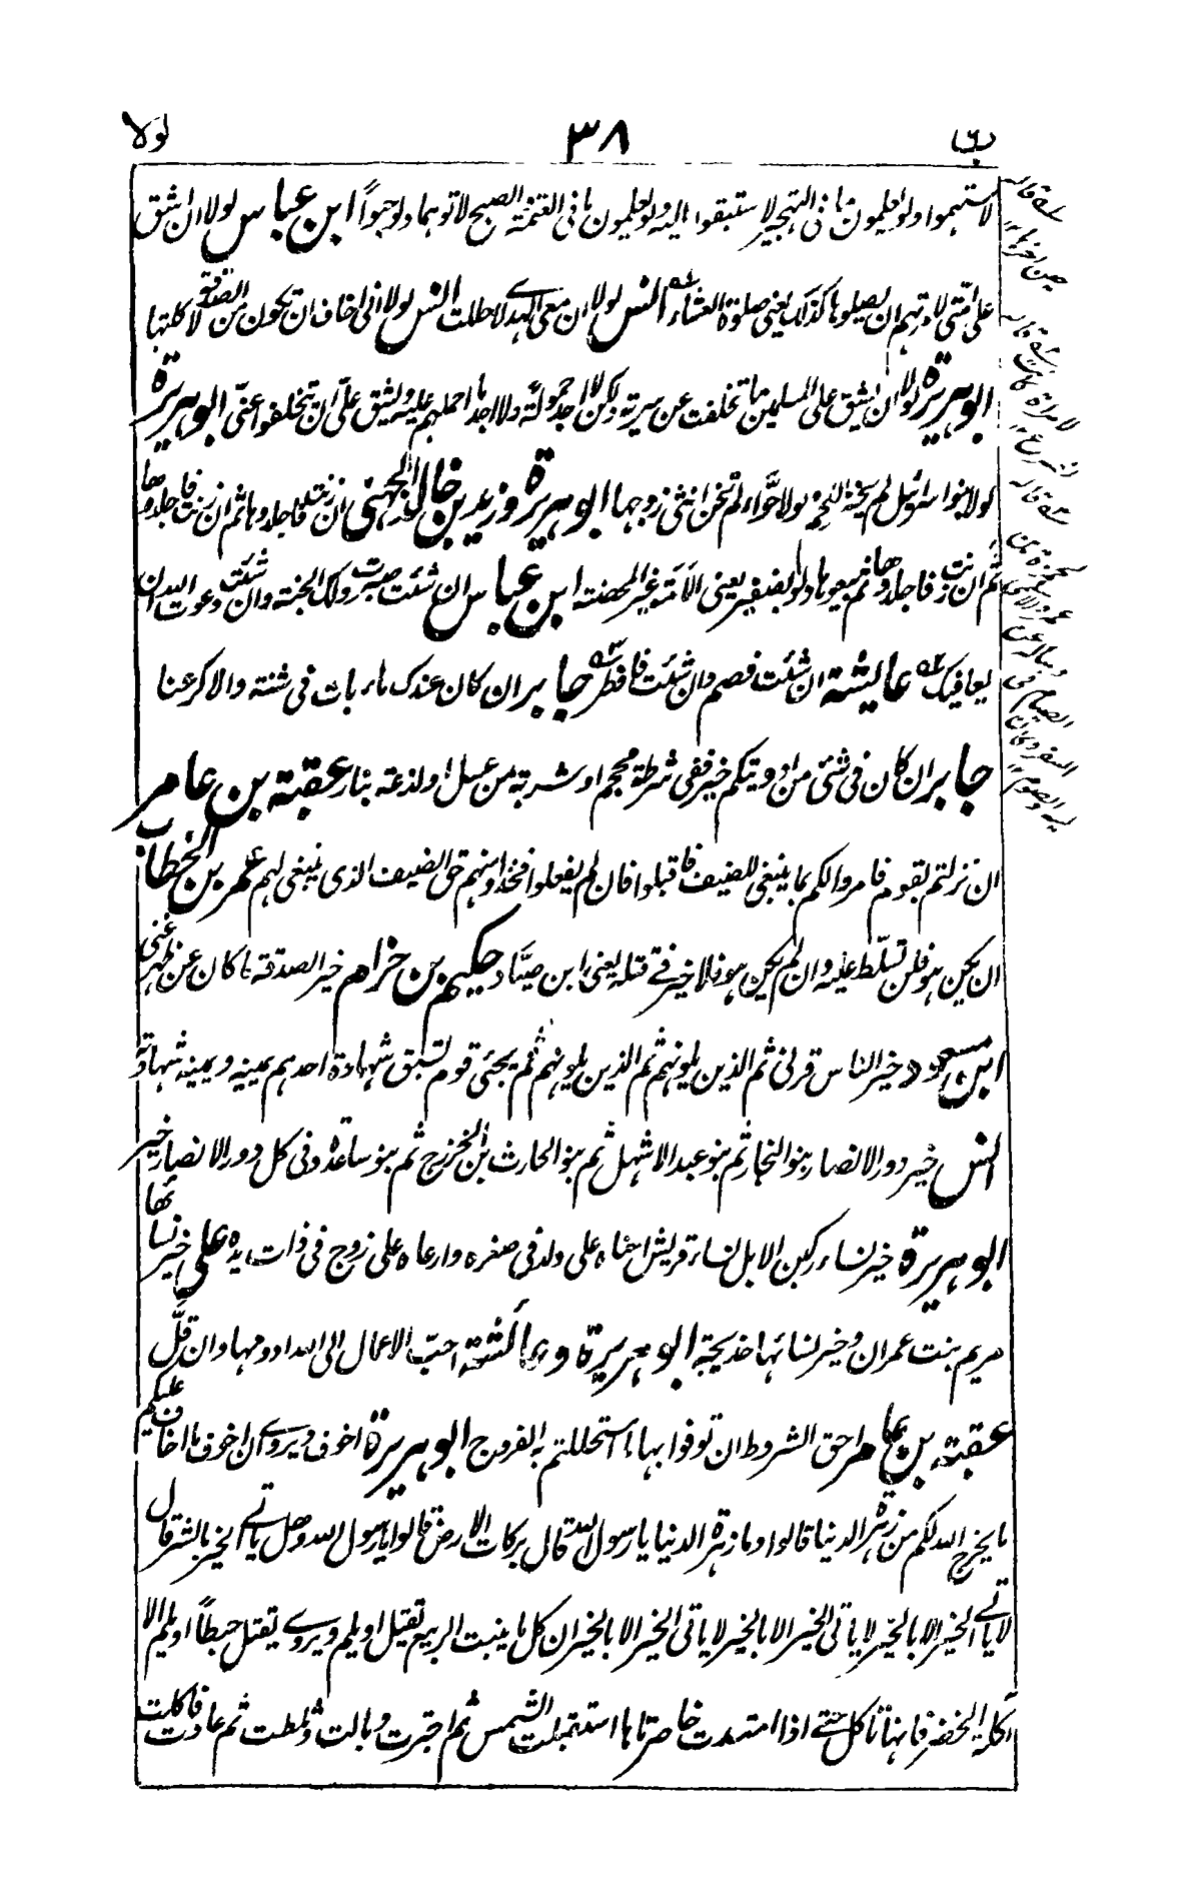 ق ٣٨ لولا
لاستهموا ولو يعلمون ما فى التهجير لاستبقوا اليه ولو يعلمون ما فى العتمة والصبح لاتوهما ولو حبوًا ابن عباس لولا ان اشق
على امتى لامرتهم ان يصلوها كذلك يعنى صلوة العشاء انس لولا ان معى الهدى لاحللت انس لولا انى اخاف ان تكون من الصدقة لاكلتها
ابو هريرة لولا ان يشق على المسلمين ما تخلفت عن سرية ولكن لا اجد حمولة ولا اجد ما احملهم عليه ويشق علىّ ان يتخلفوا عنى ابو هريرة
لولا بنو اسرائيل لم يخنز اللحم ولولا حوّاء لم تخن انثى زوجها ابو هريرة وزيد بن خالد الجهنى ان زنت فاجلدوها ثم ان زنت فاجلدوها
ثم ان زنت فاجلدوها ثم بيعوها ولو بضفير يعنى الاَمَة غير المحصنة ابن عباس ان شئت صبرت ولك الجنة وان شئت دعوت الله ان
يعافيك عايشة ان شئت فصم وان شئت فافطر جابر ان كان عندك ماء بات فى شنة والا كرعنا
جابر ان كان فى شئى من ادويتكم خير ففى شرطة محجم او شربة من عسل او لذعة بنار عقبة بن عامر
ان نزلتم بقوم فامروا لكم بما ينبغى للضيف فاقبلوا فان لم يفعلوا فخذوا منهم حق الضيف الذى ينبغى لهم عمر بن الخطاب
ان يكن هو فلن تسلّط عليه وان لم يكن هو فلا خير فى قتله يعنى ابن صيّاد حكيم بن حزام خير الصدقة ما كان عن ظهر غنى
ابن مسعود خير الناس قرنى ثم الذين يلونهم ثم الذين يلونهم ثم يجئى قوم تسبق شهادة احدهم يمينه ويمينه شهادته
انس خير دور الانصار بنو النجار ثم بنو عبد الاشهل ثم بنو الحارث بن الخزرج ثم بنو ساعدة وفى كل دور الانصار خير
ابو هريرة خير نساء ركبن الابل نساء قريش احناه على ولد فى صغره وارعاه على زوج فى ذات يده على خير نسائها
مريم بنت عمران وخير نسائها خديجة ابو هريرة وعائشة احبّ الاعمال الى الله ادومها وان قلَّ
عقبة بن عامر احق الشروط ان توفوا بها ما استحللتم به الفروج ابو هريرة اخوف ويروى ان اخوف ما اخاف عليكم
ما يخرج الله لكم من زهرة الدنيا قالوا وما زهرة الدنيا يا رسول الله قال بركات الارض قالوا يا رسول الله وهل ياتى الخير بالشر قال
لا ياتى الخير الا بالخير لا ياتى الخير الا بالخير لا ياتى الخير الا بالخير ان كل ما ينبت الربيع يقتل او يلم ويروى يقتل حبطًا او يلم الا
آكلة الخضر فانها تاكل حتى اذا امتدت خاصرتاها استقبلت الشمس ثم اجترت وبالت وثلطت ثم عادت فاكلت